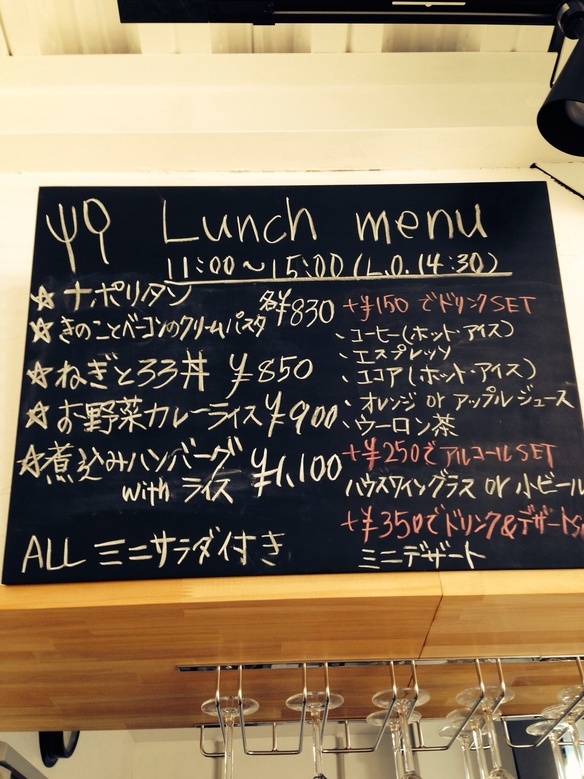 Lunch menu
11:00～15:00(L.O.14:30)
☆ナポリタン
☆きのことベーコンのクリームパスタ
各¥830
☆ねぎとろ丼 ¥850
☆お野菜カレーライス ¥900
☆煮込みハンバーグ
with ライス
¥1,100
ALL ミニサラダ付き
+¥150でドリンクSET
、コーヒー(ホット・アイス)
、エスプレッソ
、ココア(ホット・アイス)
、オレンジ or アップルジュース
、ウーロン茶
+¥250でアルコールSET
ハウスワイングラス or 小ビール
+¥350でドリンク&デザート
ミニデザート